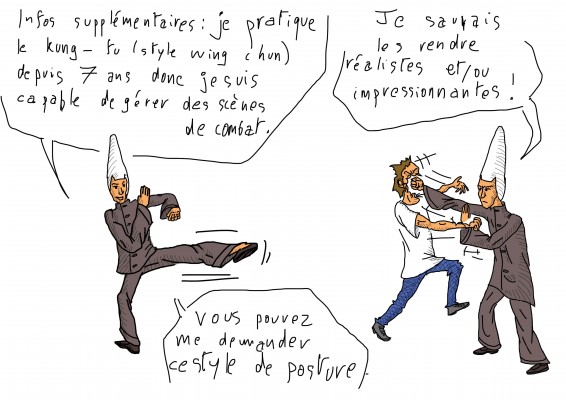 Infos supplémentaires : je pratique
le kung-fu (style wing chun)
depuis 7 ans donc je suis
capable de gérer des scènes
de combat.
Je saurais
les rendre
réalistes et/ou
impressionnantes !
Vous pouvez
me demander
ce style de posture.